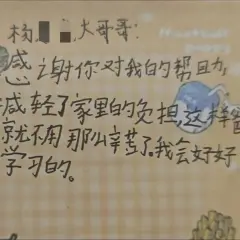 杨 大哥哥:
感谢你对我的帮助,
减轻了家里的负担,这样
就不用那么辛苦了。我会好好
学习的。